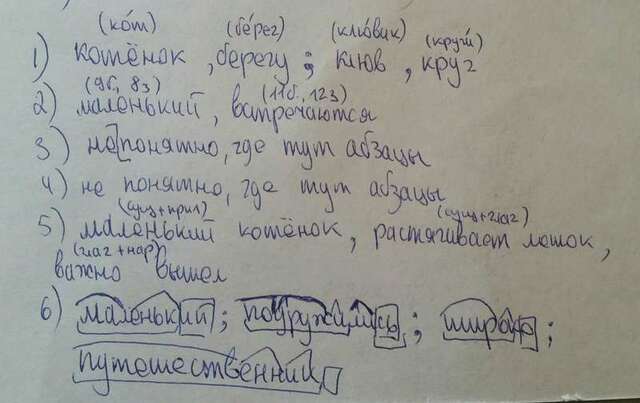 (ко́т) (бе́рег) (клювик) (круги́)
1) котёнок, берегу; клюв, круг
(9б, 8з) (11б, 12з)
2) маленький, встречаются
3) непонятно, где тут абзацы
4) не понятно, где тут абзацы
(сущ+прил) (сущ+глаг)
5) маленький котёнок, растягивает мешок,
(глаг+нар)
важно вышел
6) маленький; подружились; жираф;
путешественник